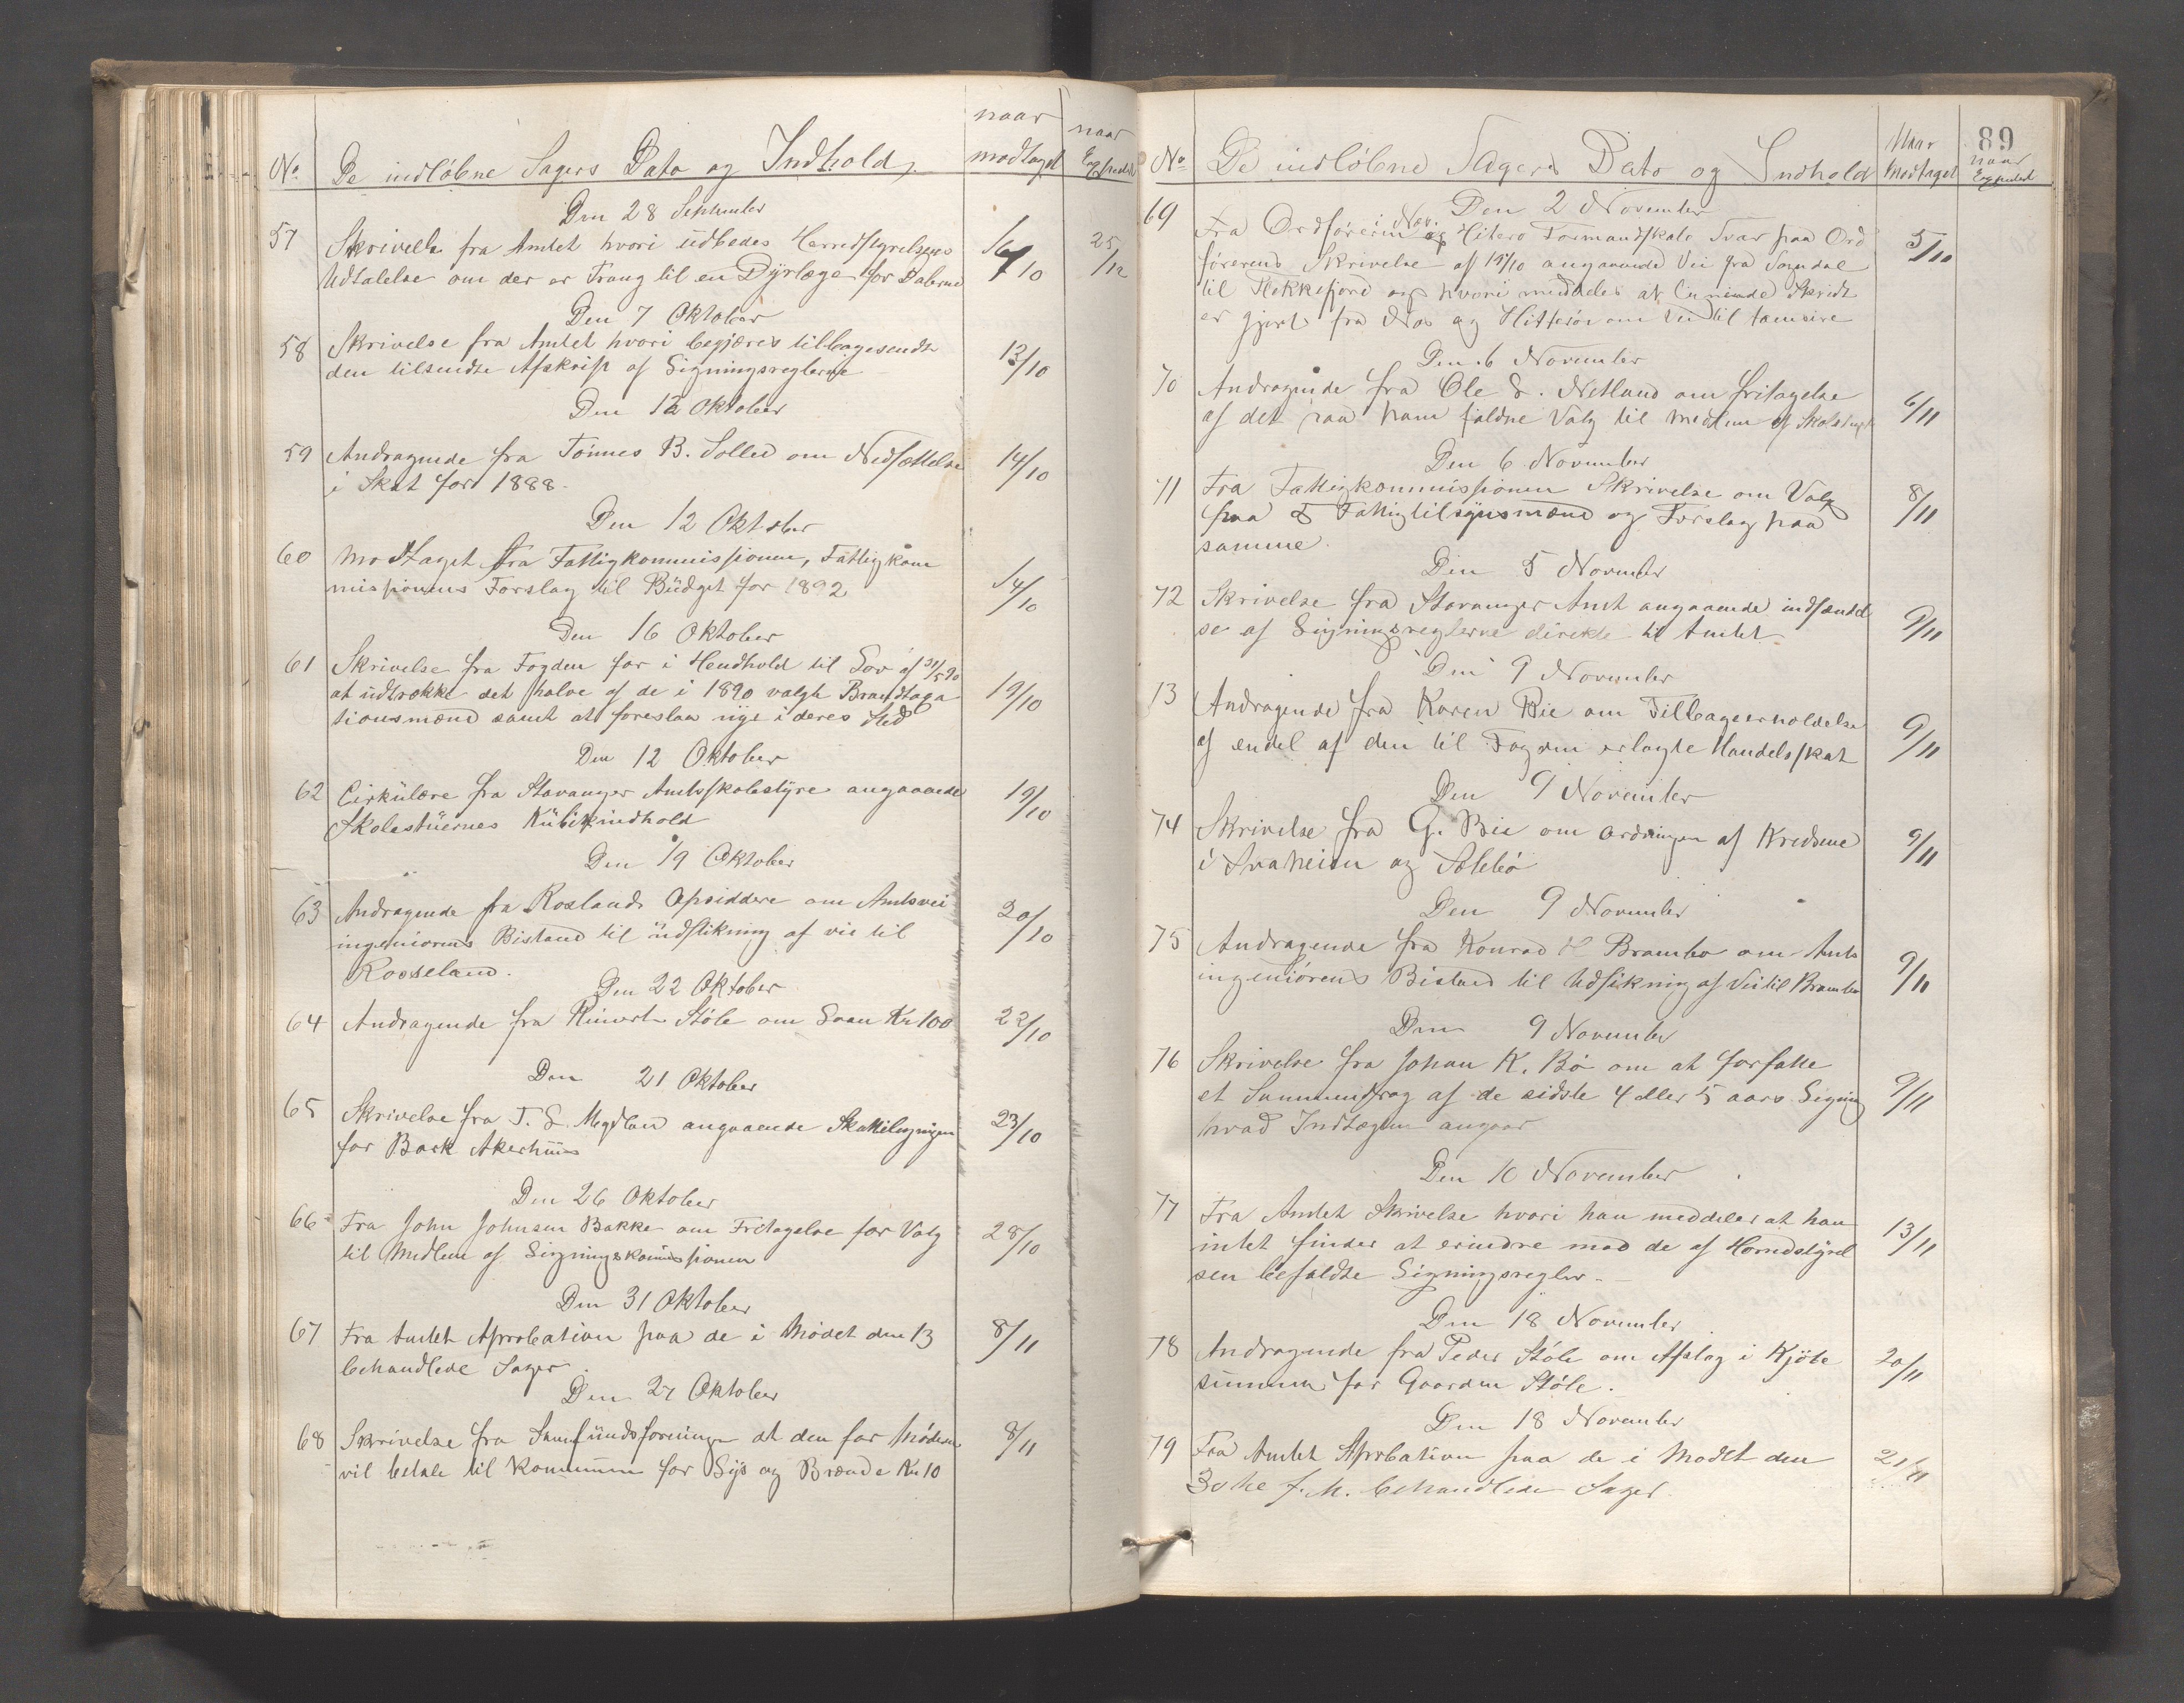 No. De indløbne Sagers Dato og Indhold, naar modtaget naar Exspedert
Den 28 September
57 Skrivelse fra Amtet hvori udbedes Herredstyrelsens
Udtalelse om der er Trang til en Dyrlæge for Dalerne 6/10 25/12
Den 7 Oktober
58 Skrivelse fra Amtet hvori begjæres tilbagesendt
den tilsendte Afskrift af Ligningsreglerne 13/10
Den 12 Oktober
59 Andragende fra Tönnes B. Solled om Nedsættelse
i Skat for 1888. 14/10
Den 12 Oktober
60 Modtaget fra Fattigkommissionen, Fattigkom
missionens Forslag til Büdget for 1892 14/10
Den 16 Oktober
61 Skrivelse fra Fogden for i Hendhold til Lov af 31/5 90
at udtrække det halve af de i 1890 valgte Brandtaga
tionsmænd samt at foreslaa nye i deres Sted 19/10
Den 12 Oktober
62 Cirkülære fra Stavanger Amtsskolestyre angaaende
Skolestüernes Kübikindhold 19/10
Den 19 Oktober
63 Andragende fra Roslands Opsiddere om Amtsvei
ingeniørens Bistand til üdstikning af vei til
Rosseland. 20/10
Den 22 Oktober
64 Andragende fra Reinert Støle om Laan Kr 100 22/10
Den 21 Oktober
65 Skrivelse fra T. S. Mydland angaaende Skatteligningen
for Bark Akerhüüs 23/10
Den 26 Oktober
66 Fra John Johnsen Bakke om Fritagelse for Valg
til Medlem af Ligningskommissionen 28/10
Den 31 Oktober
67 Fra Amtet Aprobation paa de i Mødet den 13
behandlede Sager. 8/11
Den 27 Oktober
68 Skrivelse fra Samfündsforeningen at den for Møderne
vil betale til Kommünen for Lys og Brænde Kr 10 8/11
89
No. De indløbne Sagers Dato og Indhold Naar Modtaget naar Expedert
Den 2 November
69 Fra Ordføreren i Næs og Hitterø Formandskab Svar paa Ord
førerens Skrivelse af 19/10 angaaende Vei fra Sogndal
til Flekkefjord og hvori meddeles at Skridt
er gjort fra Næs og Hitterø om Vei til 5/10
Den 6 November
70 Andragende fra Ole S. Netland om fritagelse
af det paa ham faldne Valg til Medlem af Skolestyret 6/11
Den 6 November
71 Fra Fattigkommissionen Skrivelse om Valg
paa 5 Fattigtilsynsmænd og Forslag paa
samme. 8/11
Den 5 November
72 Skrivelse fra Stavanger Amt angaaende indsendel
se af Ligningsreglerne direkte til Amtet 9/11
Den 9 November
73 Andragende fra Karen Bie om Tilbageerholdelse
af endel af den til Fogden erlagte Handelsskat 9/11
Den 9 November
74 Skrivelse fra G. Bie om ordningen af Kredsene
i Svaheien og Ælebø 9/11
Den 9 November
75 Andragende fra Konrad Brambo om Amts
ingeniørens Bistand til Udstikning af Vei til Brambo 9/11
Den 9 November
76 Skrivelse fra Johan K. Bø om at forfatte
et Sammendrag af de sidste 4 eller 5 aars Ligning
hvad Indtægten angaar 9/11
Den 10 November
77 Fra Amtet Skrivelse hvori han meddeler at han
intet finder at erindre mod de af Herredstyrel
sen befaldte Ligningsregler. 13/11
Den 18 November
78 Andragende fra Peder Støle om Afslag i Kjøbe
summen for Gaarden Støle. 20/11
Den 18 November
79 Fra Amtet Aprobation paa de i Mødet den
30te f. M. behandlede Sager. 21/11